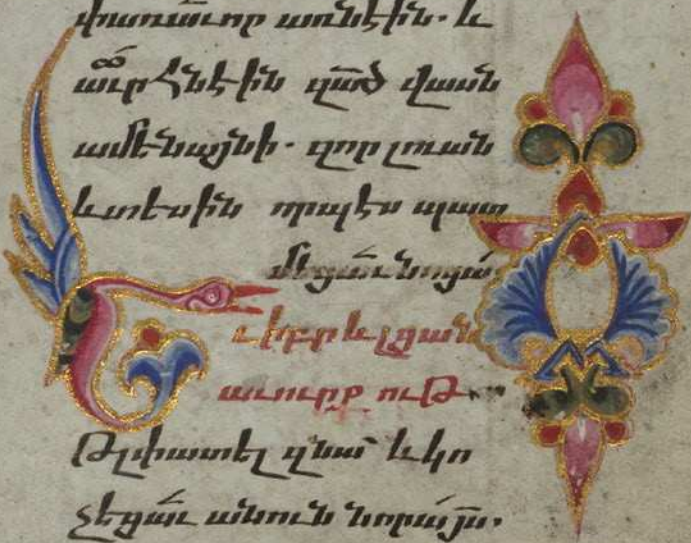 փառաւոր առնէին. և
աւրհնէին զած վասն
ամենայնի. զոր լուան
և տեսին որպէս պատ
մեցաւ նոցա
ւ իբր և լցան
աւուրք ութ
թլփատել զնա և կո
չեցաւ անուն նորա յս.